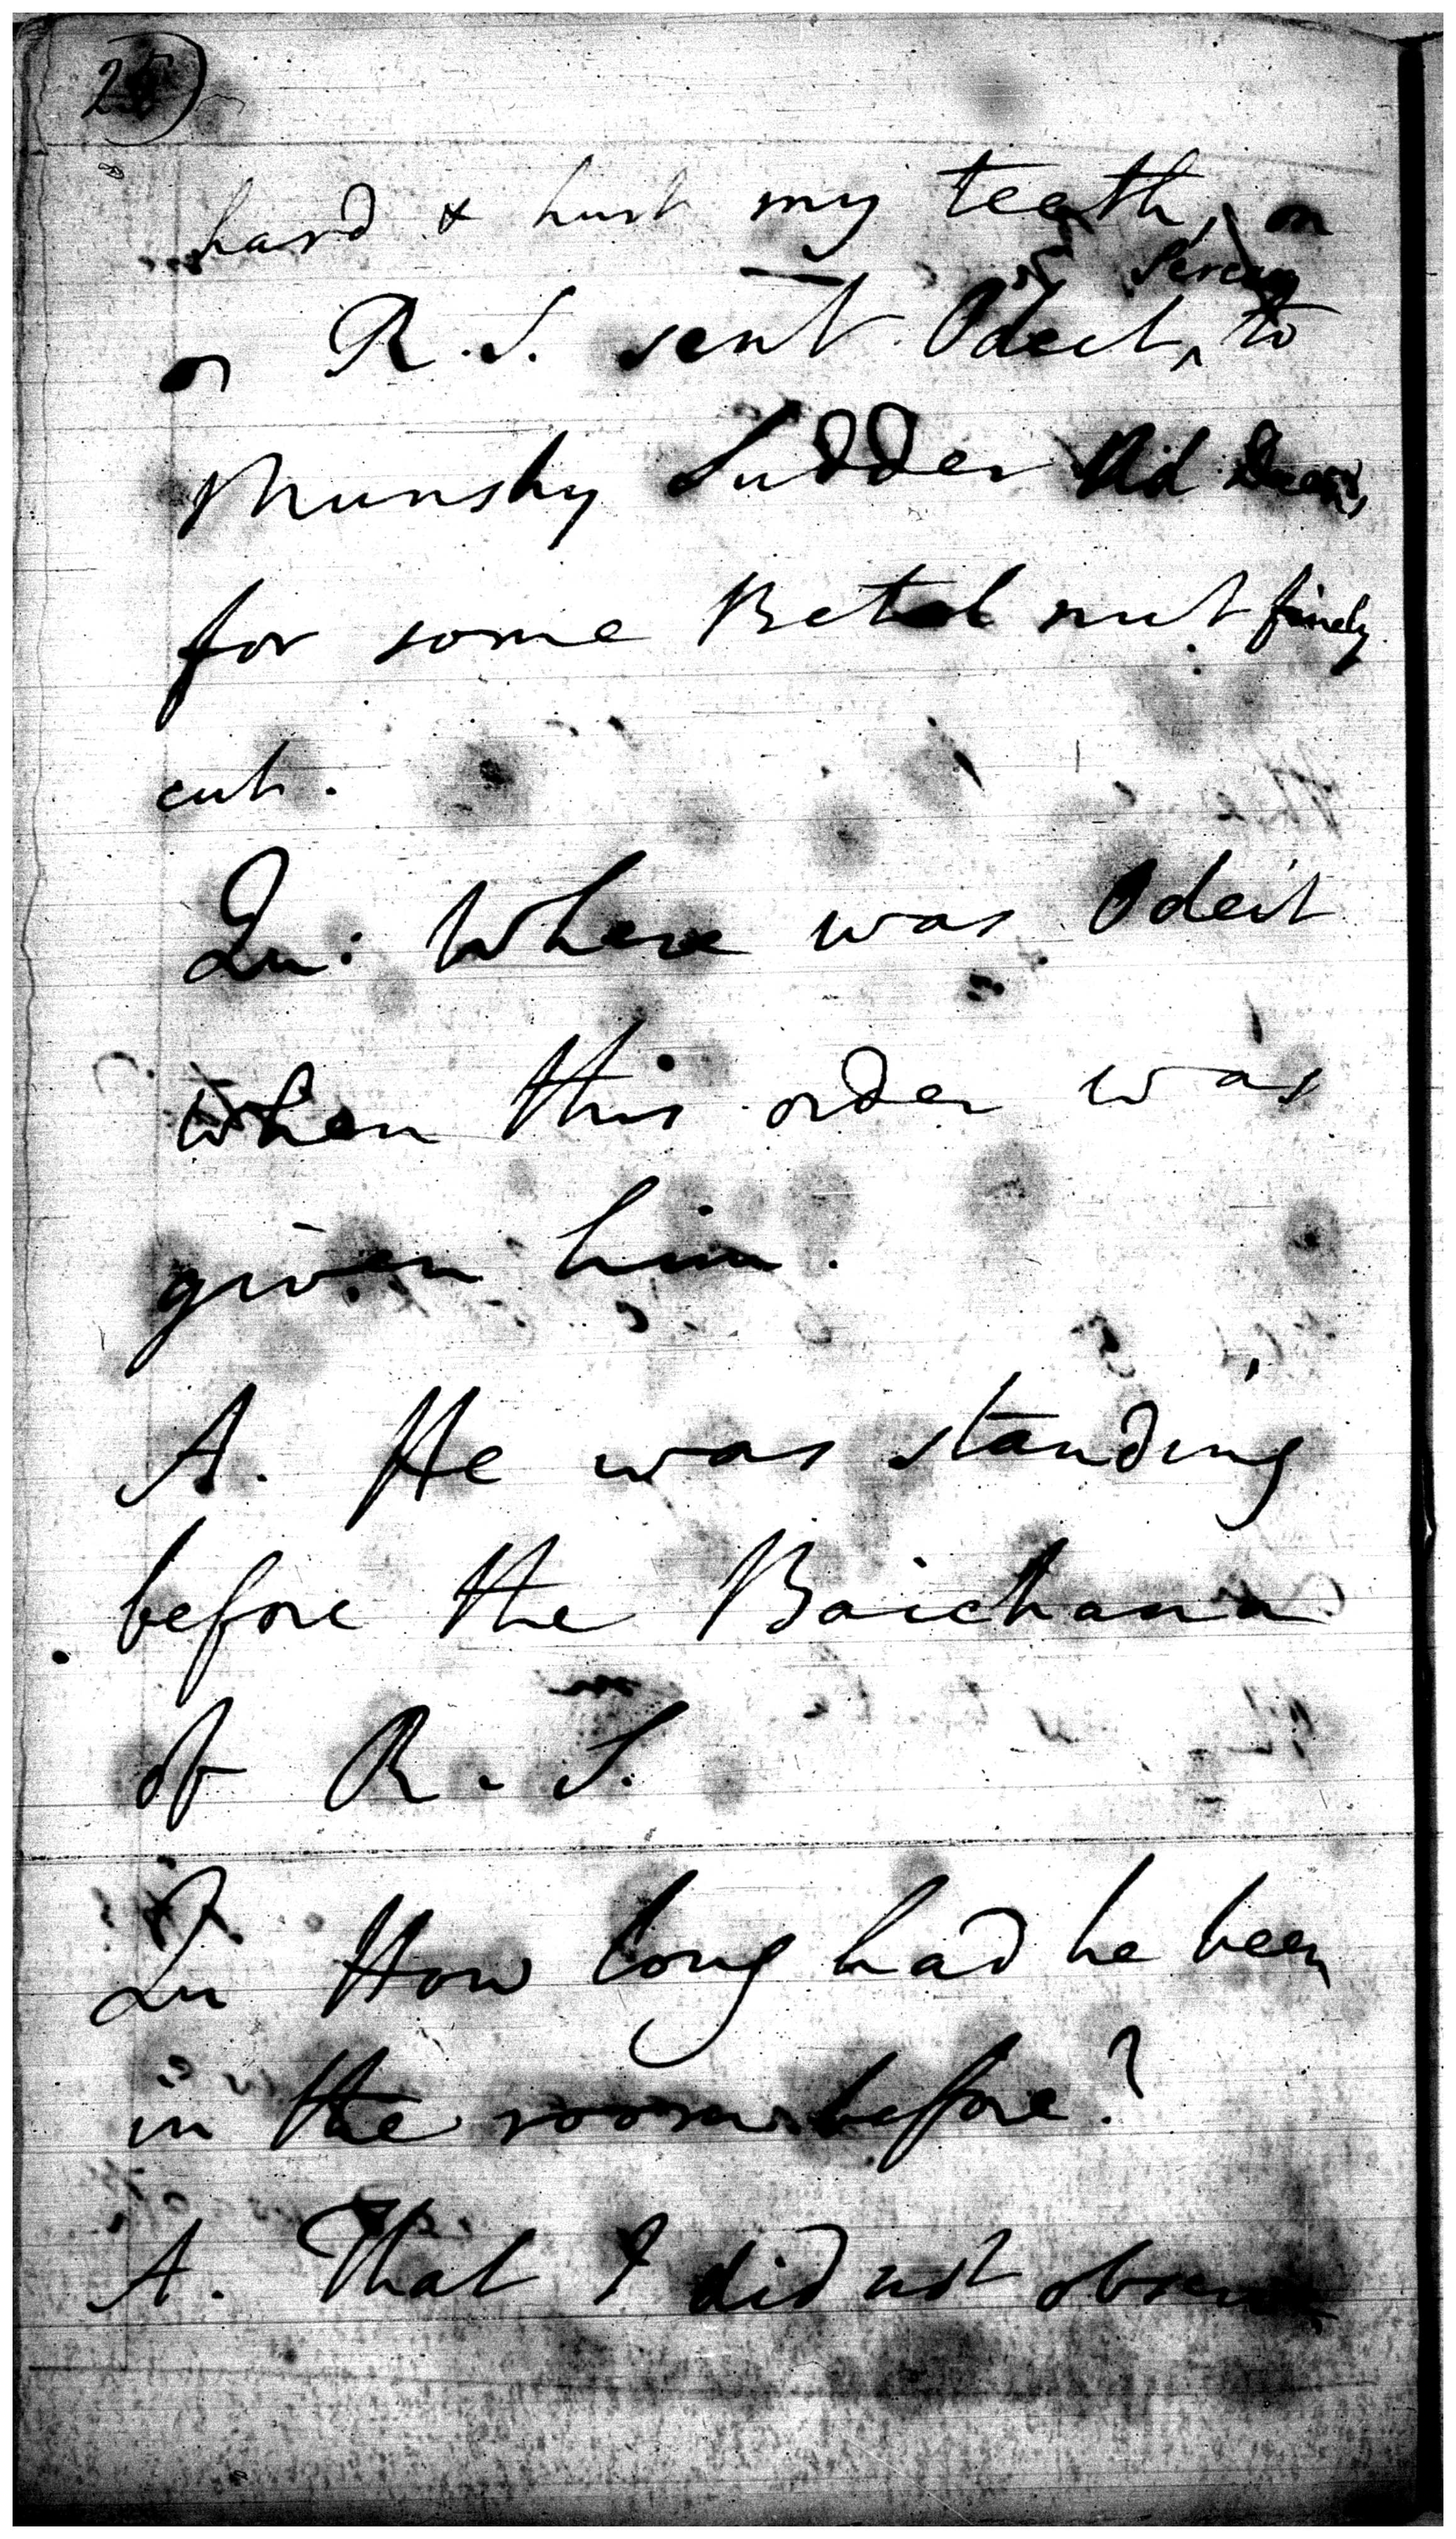 hard & hurt my teeth, on
R.S. sent Odeit, to
Munshy Sudder
for some Betel nut finely
cut.
Qu: Where was Odeit
when this order was
given him.
A. He was standing
before the Baichana
of R.S.
Qu How long had he been
in the room before?
A. That I did not observe